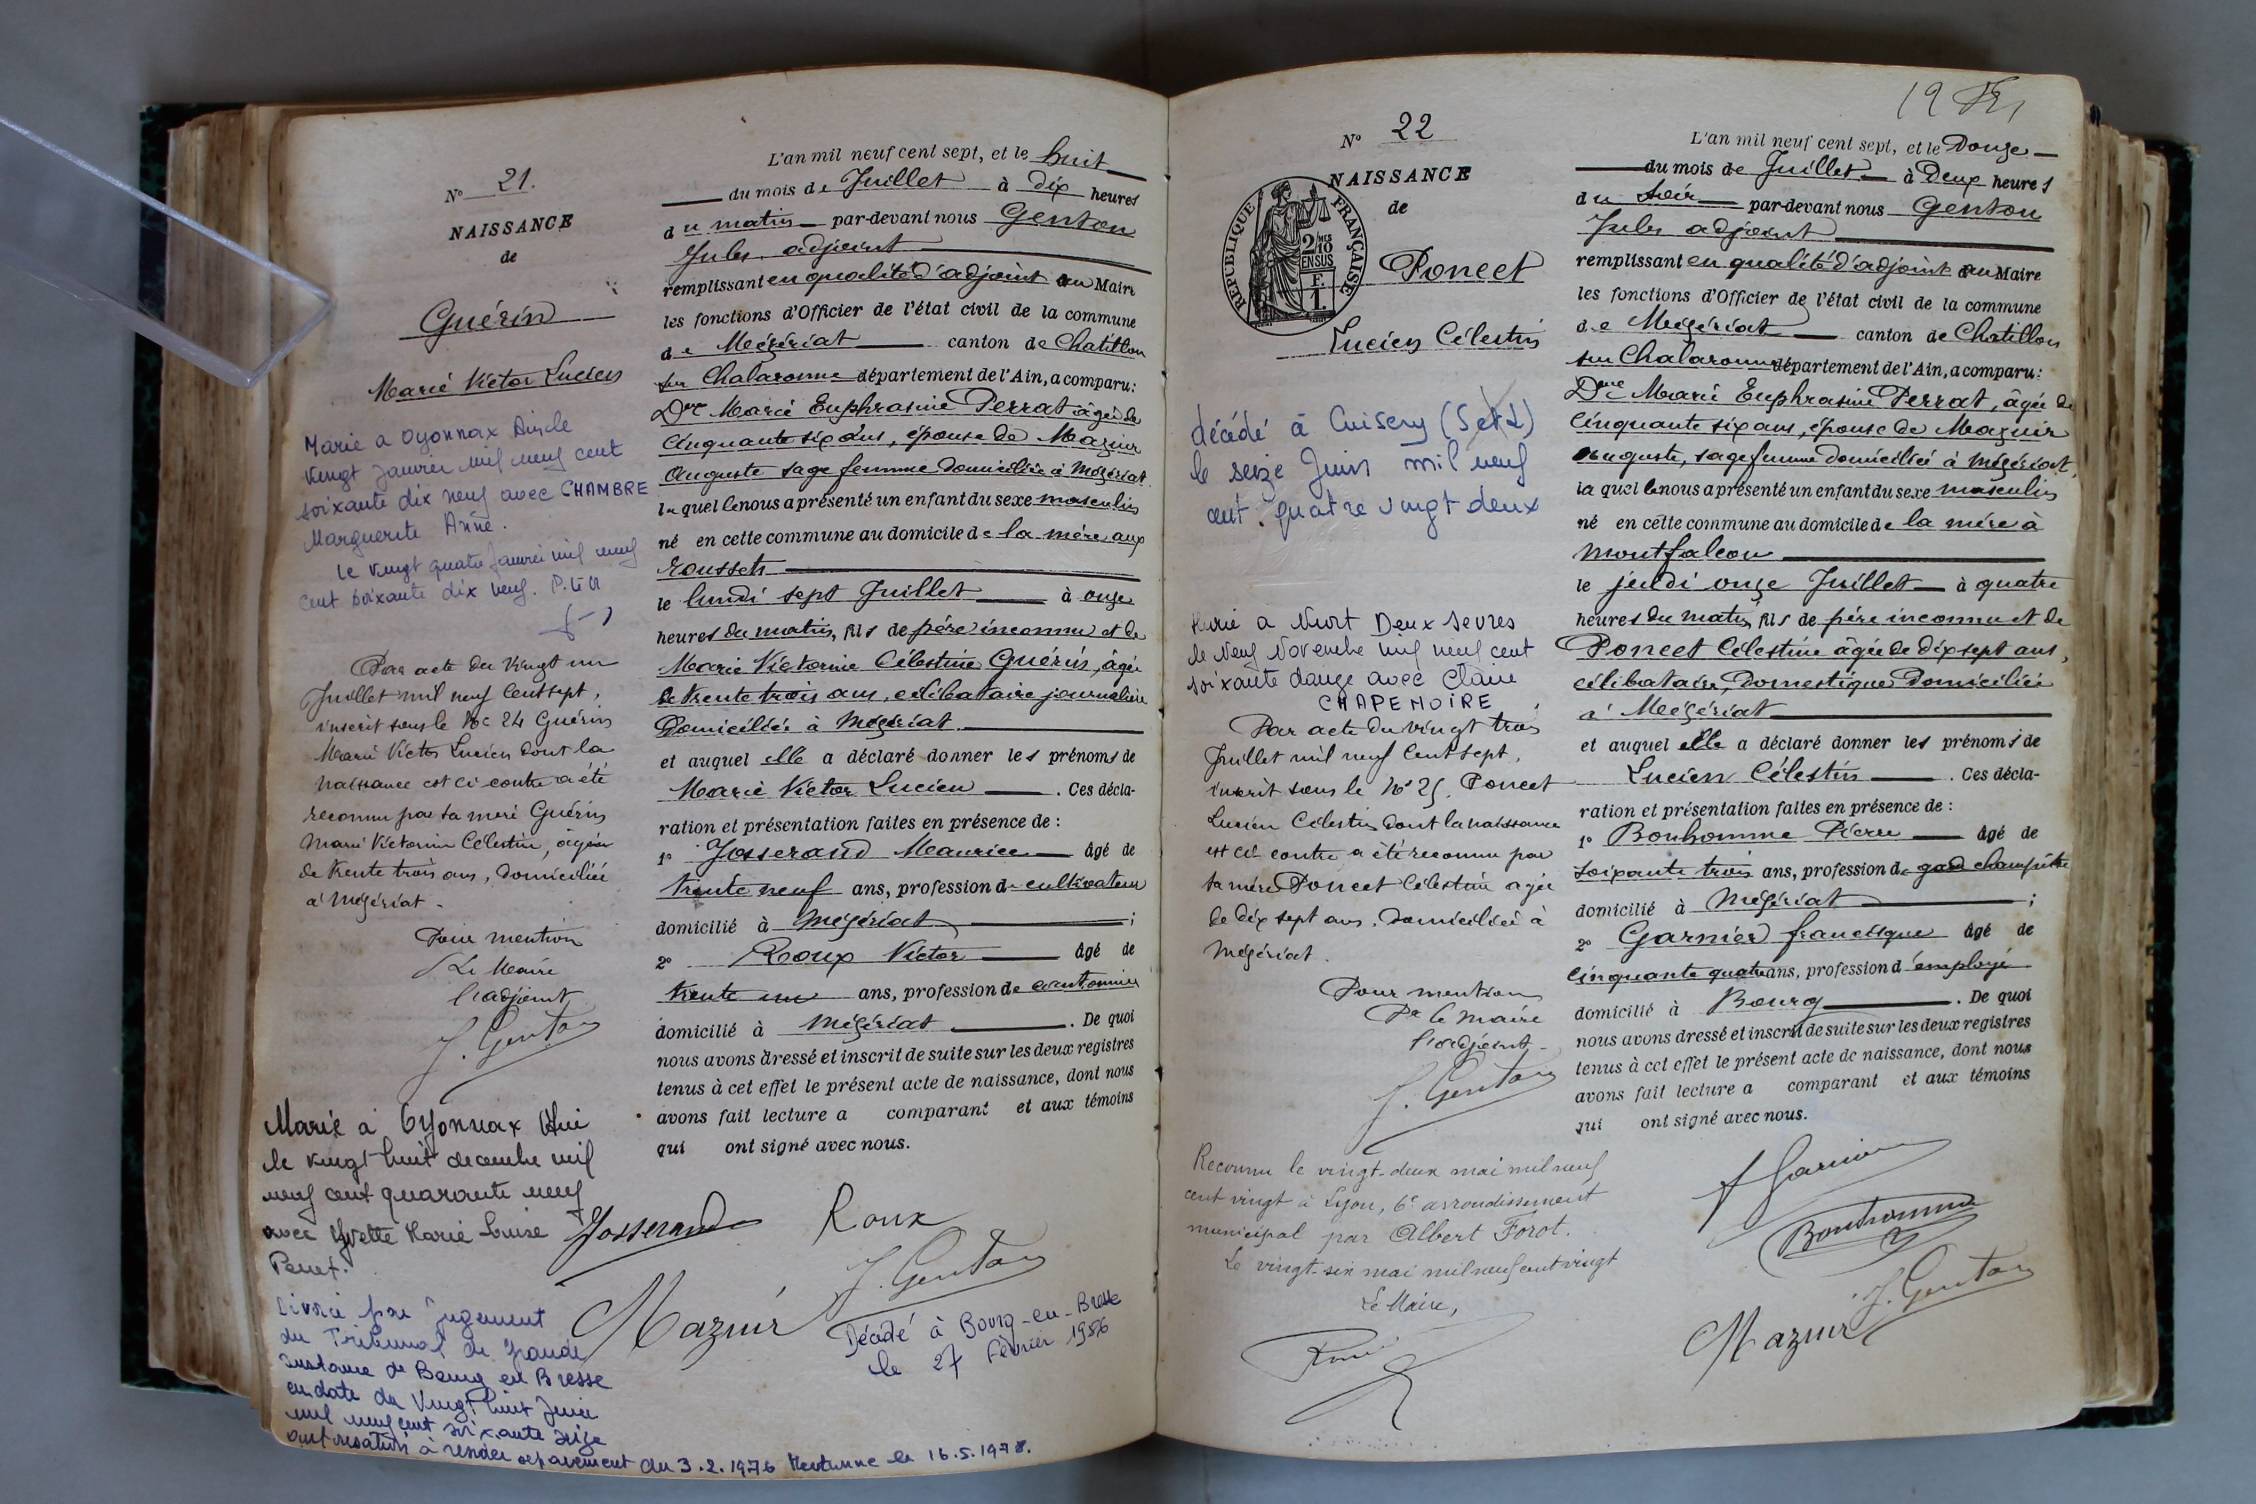 N° 21.
NAISSANCE
de
Guérin
Marie Victor Lucien
Marié à Oyonnax Ain le
vingt janvier mil neuf cent
soixante dix neuf avec CHAMBRE
Marguerite Anne.
le vingt quatre janvier mil neuf
cent soixante dix neuf.
Par acte du vingt un
Juillet mil neuf cent sept,
inscrit sous le No 24 Guérin
Marie Victor Lucien dont la
naissance est ci contre a été
reconnu par sa mère Guérin
Marie Victorine Célestine, âgée
de trente trois ans, domiciliée
à Mézériat.
Pour mention
Le Maire
l'adjoint
J. Genton
Marié à Oyonnax Ain
le vingt huit décembre mil
neuf cent quarante neuf
avec Yvette Marie Louise
Perret.
Divorcé par jugement
du Tribunal de Grande
Instance de Bourg en Bresse
en date du Vingt huit Juin
mil neuf cent soixante seize
autorisation à résider séparément du 3.2.1976 Mentionné le 16.5.1978.
L'an mil neuf cent sept, et le huit
du mois de Juillet à dix heures
du matin par-devant nous Genton
Jules adjoint
remplissant en qualité d'adjoint au Maire
les fonctions d'Officier de l'état civil de la commune
de Mézériat canton de Chatillon
sur Chalaronne département de l'Ain, a comparu:
Dme Marie Euphrasine Perrat âgée de
cinquante six ans, épouse de Mazuir
Auguste sage femme domiciliée à Mézériat
laquelle nous a présenté un enfant du sexe masculin
né en cette commune au domicile de la mère aux
Roussets
le lundi sept Juillet à onze
heures du matin, fils de père inconnu et de
Marie Victorine Célestine Guérin, âgée
de trente trois ans, célibataire journalière
domiciliée à Mézériat
et auquel elle a déclaré donner les prénoms de
Marie Victor Lucien . Ces décla-
ration et présentation faites en présence de :
1° Josserand Maurice âgé de
trente neuf ans, profession de cultivateur
domicilié à Mézériat ;
2° Roux Victor âgé de
trente un ans, profession de cantonnier
domicilié à Mézériat . De quoi
nous avons dressé et inscrit de suite sur les deux registres
tenus à cet effet le présent acte de naissance, dont nous
avons fait lecture a comparant et aux témoins
qui ont signé avec nous.
Josserand Roux
Mazuir J. Genton
Décédé à Bourg-en-Bresse
le 27 février 1986
19
N° 22
NAISSANCE
de
RÉPUBLIQUE FRANÇAISE
2/10 MES
EN SUS
F.
1.
Poncet
Lucien Célestin
décédé à Cuisery (S et L)
le seize Juin mil neuf
cent quatre vingt deux
Marié à Niort Deux Sevres
le Neuf Novembre mil neuf cent
soixante douze avec Claire
CHAPENOIRE
Par acte du vingt trois
Juillet mil neuf cent sept,
inscrit sous le N° 25. Poncet
Lucien Célestin dont la naissance
est ci-contre a été reconnu par
sa mère Poncet Célestine agée
de dix sept ans. domiciliée à
Mézériat.
Pour mention
Pr le maire
l'adjoint
J. Genton
Reconnu le vingt-deux mai mil neuf
cent vingt à Lyon, 6e arrondissement
municipal par Albert Forot.
Le vingt-six mai mil neuf cent vingt
Le Maire,
L'an mil neuf cent sept, et le Douze
du mois de Juillet à Deux heures
du soir par-devant nous Genton
Jules adjoint
remplissant en qualité d'adjoint au Maire
les fonctions d'Officier de l'état civil de la commune
de Mézériat canton de Chatillon
sur Chalaronne département de l'Ain, a comparu:
Dme Marie Euphrasine Perrat, âgée de
cinquante six ans, épouse de Mazuir
Auguste, sage femme domiciliée à Mézériat,
laquelle nous a présenté un enfant du sexe masculin
né en cette commune au domicile de la mère à
Montfalcon
le jeudi onze Juillet à quatre
heures du matin, fils de père inconnu et de
Poncet Célestine âgée de dix sept ans,
célibataire, Domestique Domiciliée
à Mézériat
et auquel elle a déclaré donner les prénoms de
Lucien Célestin . Ces décla-
ration et présentation faites en présence de :
1° Bonhomme Pierre âgé de
soixante trois ans, profession de garde champêtre
domicilié à Mézériat ;
2° Garnier francisque âgé de
cinquante quatre ans, profession d'employé
domicilié à Bourg . De quoi
nous avons dressé et inscrit de suite sur les deux registres
tenus à cet effet le présent acte de naissance, dont nous
avons fait lecture a comparant et aux témoins
qui ont signé avec nous.
f Garnier
Bonhomme
J. Genton
Mazuir